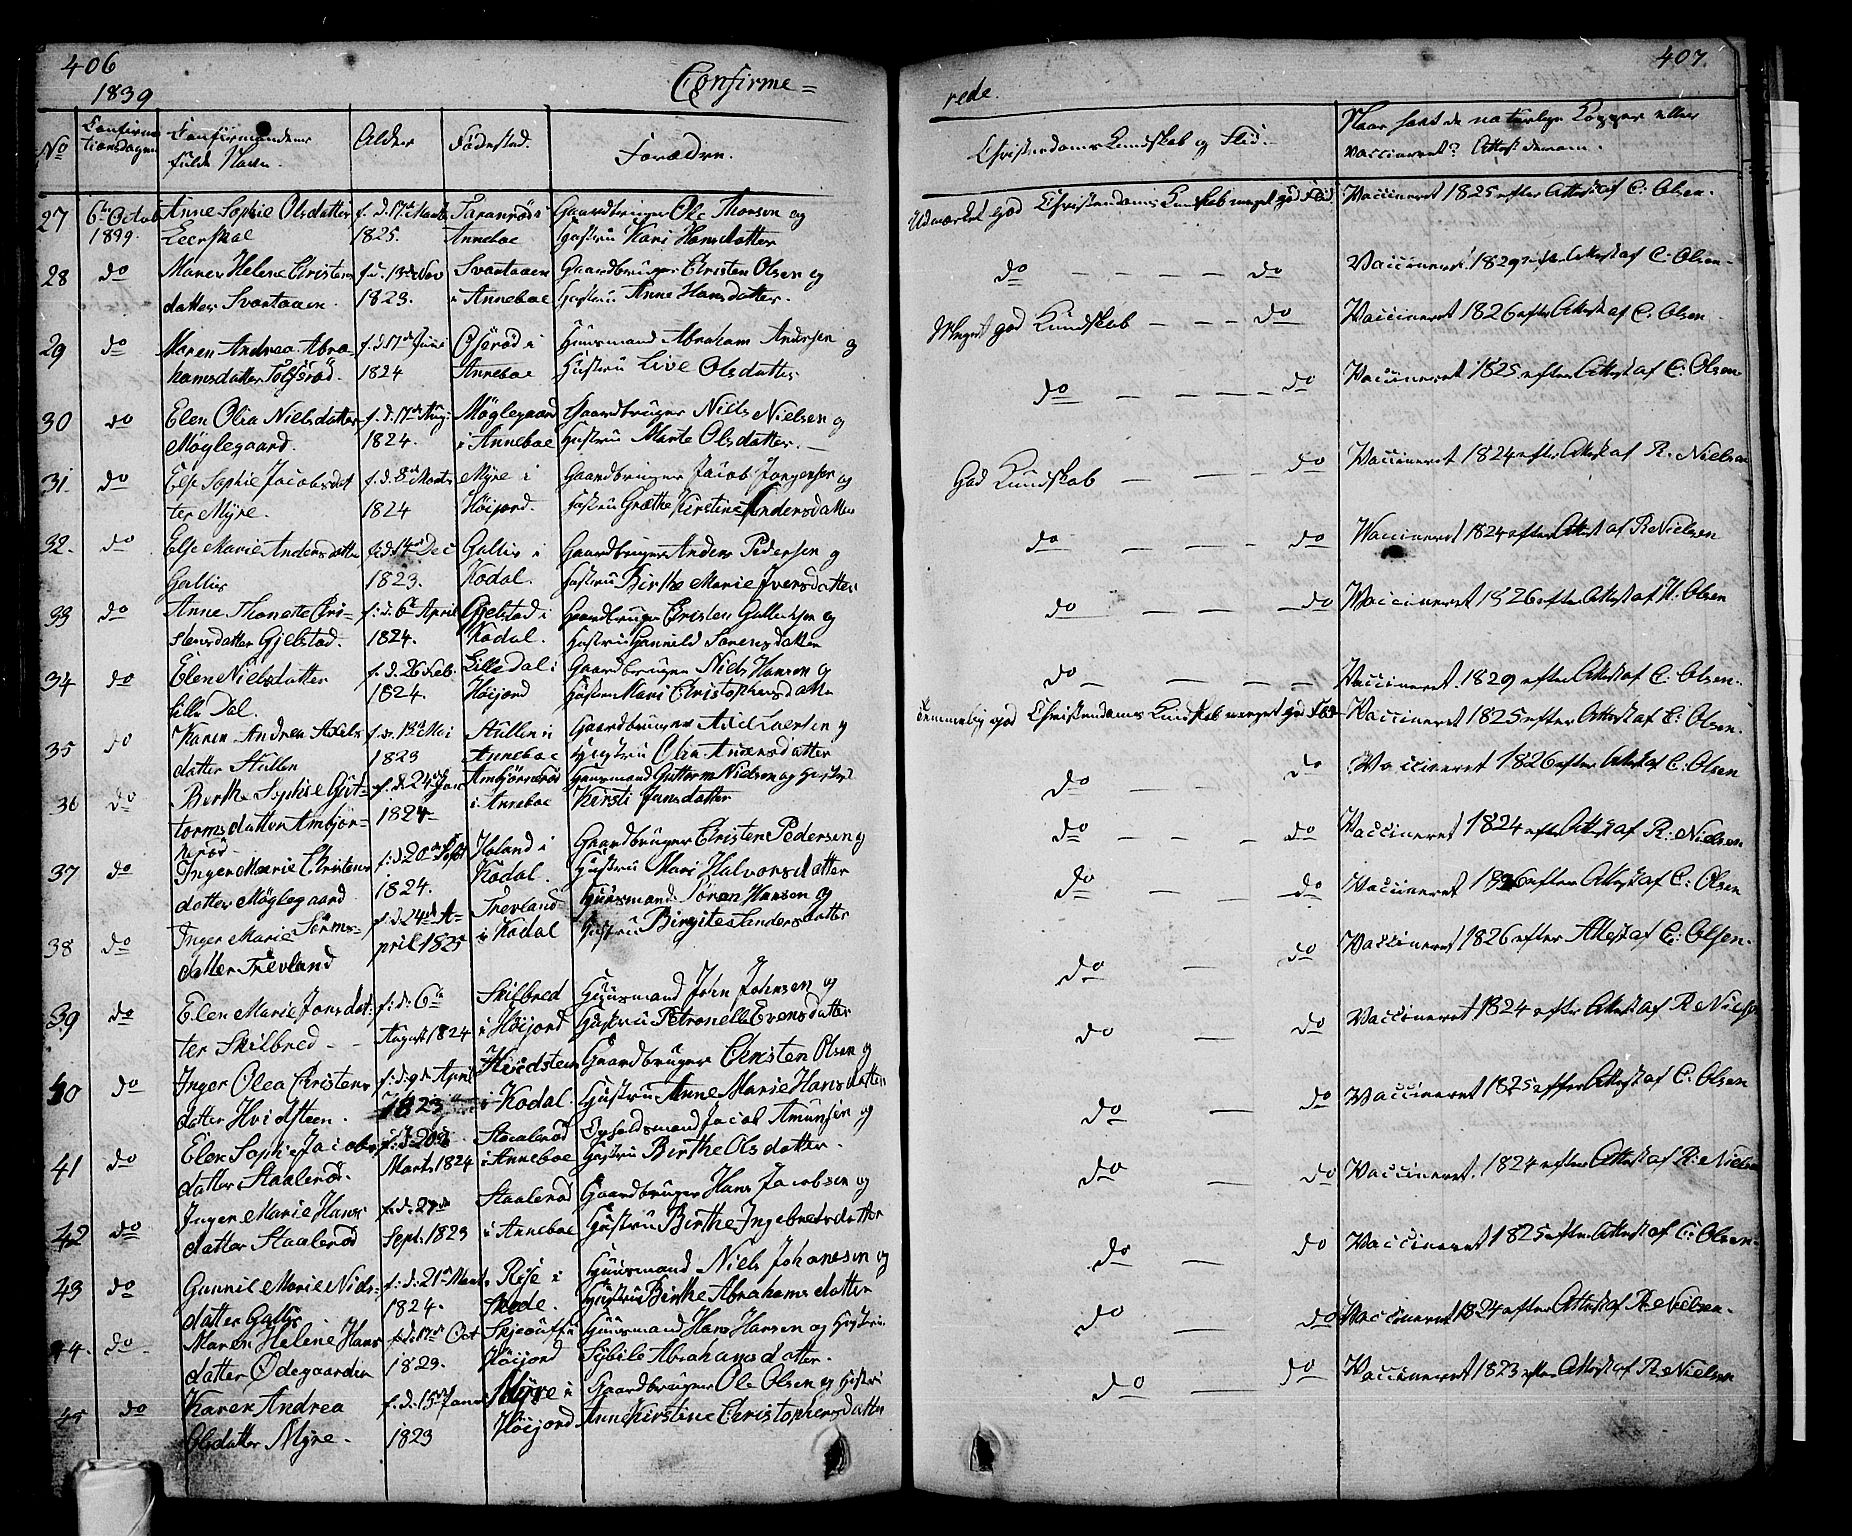 406
1839
Confirme=
No
Confirma
tionsdagen
Confirmandens
fulde Navn.
Alder
Födested.
Forældre.
27 6te Octob Anne Sophie Olsdatter f. d. 17de Marts Taranröd i Gaardbruger Ole Thorsen og
1839. Leerskal 1825. Anneboe Hustru Kari Hansdatter
28 do Maren Helene Christens f. d. 13de Nov Svartaaen Gaardbruger Christen Olsen og
datter Svartaaen. 1823. i Anneboe Hustru Anne Hansdatter.
29 do Maren Andrea Abra= f. d. 17de Juni i Huusmand Abraham Andersen og
hamsdatter 1824 Anneboe Hustru Live Olsdatter
30 do Elen Olia Nielsdatter f. d. 17de Aug: Møglegaard Gaardbruger Niels Nielsen og
Møglegaard. 1824. i Anneboe Hustru Marte Olsdatter. —
31. do Else Sophie Jacobsdat f. d. 8de Marts Myre i Gaardbruger Jacob Jørgensen og
ter Myre. 1824 Höijord. Hustru Grethe Kirstine Andersdatter
32. do Else Marie Andersdatter f. d. 14de Dec Gallis i Gaardbruger Anders Pedersen og
Gallis 1823. Kodal. Hustru Birthe Marie Iversdatter
33 do Anne Thonette Chri= f: d: 6te April Gjelstad i Gaardbruger Christen og
stensdatter Gjelstad. 1824. Kodal. Hustru Gunnild Sorensdatter
34 do Elen Nielsdatter f. d. 26 Feb. Lille Dal i Gaardbruger Niels Hansen og
Lille Dal. 1824. Höijord Hustru Mari Christophersdatter
35 do Karen Andrea Axels f. d. Mai Stullen i Gaardbruger Axel Larsen og
datter Stullen 1823 Anneboe Hustru Olia Andersdatter
36 do Berthe Sophie Gut= f. d. 24de Jan Ambjörnröd Huusmand Guttorm Nielsen og Hustru
tormsdatter Ambjör= 1824 i Anneboe Kirsti Jansdatter
neröd
37 do Inger Marie Christens f: d: 20de Sept Holand i Gaardbruger Christen Pedersen og
datter Møglegaard 1824. Kodal. Hustru Mari Halvorsdatter
38 do Inger Marie Sörens= f. d. 24de A= Trevland Huusmand Søren Hansen og
datter Trevland pril 1825 i Kodal Hustru Birgite Andersdatter
39 do Elen Marie Jonsdat: f: d: 6te Skilbred Huusmand John Johnsen og
ter Skilbred — August 1824 i Höijord Hustru Petronelle Evensdatter
40 do Inger Olea Christens f: d: 9de April Hvidsteen Gaardbruger Christen Olsen og
datter Hvidsteen. 1823 i Kodal. Hustru Anne Marie Hansdatter
41 do Elen Sophie Jacobs f: d: 20de Staaleröd Opholdsmand Jacob Amunsen og
datter Staaleröd. Marts 1824 i Anneboe Hustru Birthe Olsdatter.
42 do Inger Marie Hans f. d. 27de Staaleröd Gaardbruger Hans Jacobsen og
datter Staaleröd Sept. 1823 i Anneboe Hustru Birthe Ingebretsdatter
43 do Gunnil Marie Niels= f: d: 21de Marts Röse i Huusmand Niels Johanesen og
datter Gallis 1824. Skode. Hustru Birthe Abrahamsdatter
44. do Maren Helene Hans f. d. 17de Oct Huusmand Hans Hansen og Hustru
datter Ødegaarden 1823. Höijord Sybile Abrahamsdatter.
45 do Karen Andrea f. d. 15de Januar Myre i Gaardbruger Ole Olsen og Hustru
Olsdatter Myre. 1823 Höijord Anne Kirstine Christophersdatter
407.
rede.
Christendoms Kundskab og Flid.
Naar havt de naturlige Kopper eller
vaccineret? Attest derom.
Udmærket god Christendoms Kundskab meget god Flid Vaccineret 1825 efter Attest af C: Olsen.
do — — — — do Vaccineret 1829 efter Attest af C. Olsen.
Meget god Kundskab — — — do Vaccineret 1826 efter Attest af C. Olsen
do — — — — do Vaccineret 1825 efter Attest af C: Olsen
God Kundskab — — — do Vaccineret 1824 efter Attest af R. Nielsen
do — — — do Vaccineret 1824 efter Attest af R. Nielsen
do — — — do Vaccineret 1826 efter Attest af H. Olsen
do — — — — Vaccineret. 1829 efter Attest af C. Olsen.
Temmelig god Christendoms Kundskab meget god Flid Vaccineret 1825 efter Attest af C: Olsen.
do — — do Vaccineret 1826 efter Attest af C. Olsen
do — — do Vaccineret 1824 efter Attest af R: Nielsen
do — — do Vaccineret 1826 efter Attest af C: Olsen
do — do Vaccineret 1826 efter Attest af C: Olsen.
do — do Vaccineret 1824 efter Attest af R. Nielsen
do — do Vaccineret 1825 efter Attest af C. Olsen
do — do Vaccineret. 1824 efter Attest af R: Nielsen
do — do Vaccineret 1825 efter Attest af C: Olsen.
do — do Vaccineret 1824 efter Attest af R. Nielsen.
do — do Vaccineret 1823 efter Attest af R. Nielsen